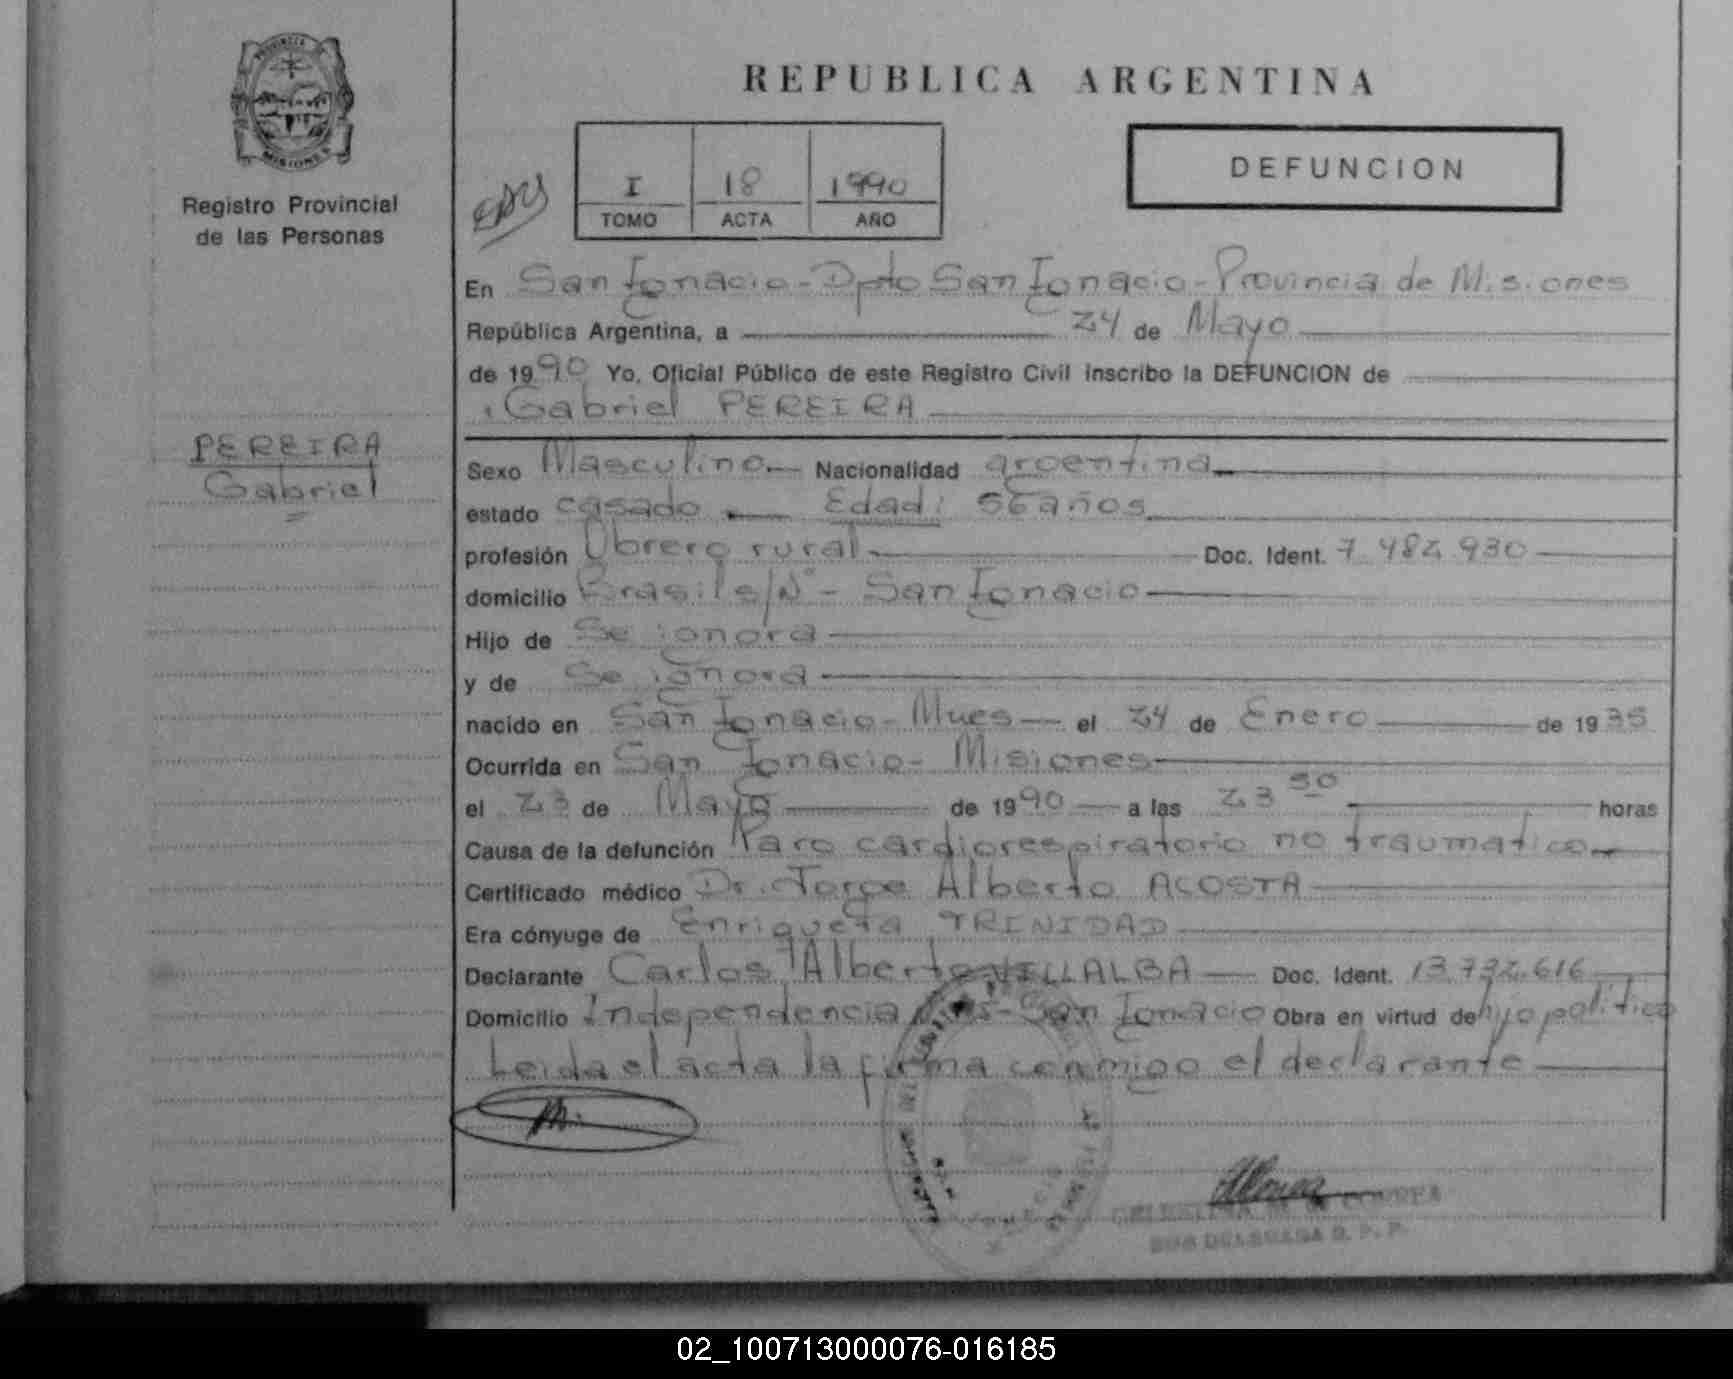 PROVINCIA
MISIONES
Registro Provincial
de las Personas
PEREIRA
Gabriel
REPUBLICA ARGENTINA
I 18 1990
TOMO ACTA AÑO
DEFUNCION
En San Ignacio - Dpto San Ignacio - Provincia de Misiones
República Argentina, a 24 de Mayo
de 1990 Yo, Oficial Público de este Registro Civil inscribo la DEFUNCION de
Gabriel PEREIRA
Sexo Masculino. Nacionalidad argentina
estado casado Edad: 56 años
profesión Obrero rural Doc. Ident. 7.482.930
domicilio Brasil s/Nº - San Ignacio
Hijo de Se ignora
y de Se ignora
nacido en San Ignacio - Mnes el 24 de Enero de 1935
Ocurrida en San Ignacio - Misiones
el 23 de Mayo de 1990 a las 23 50 horas
Causa de la defunción Paro cardiorespiratorio no traumatico
Certificado médico Dr. Jorge Alberto ACOSTA
Era cónyuge de Enriqueta TRINIDAD
Declarante Carlos Alberto VILLALBA Doc. Ident. 13.732.616
Domicilio Independencia San Ignacio Obra en virtud de hijo politico
Leida el acta la firma conmigo el declarante
02_100713000076-016185